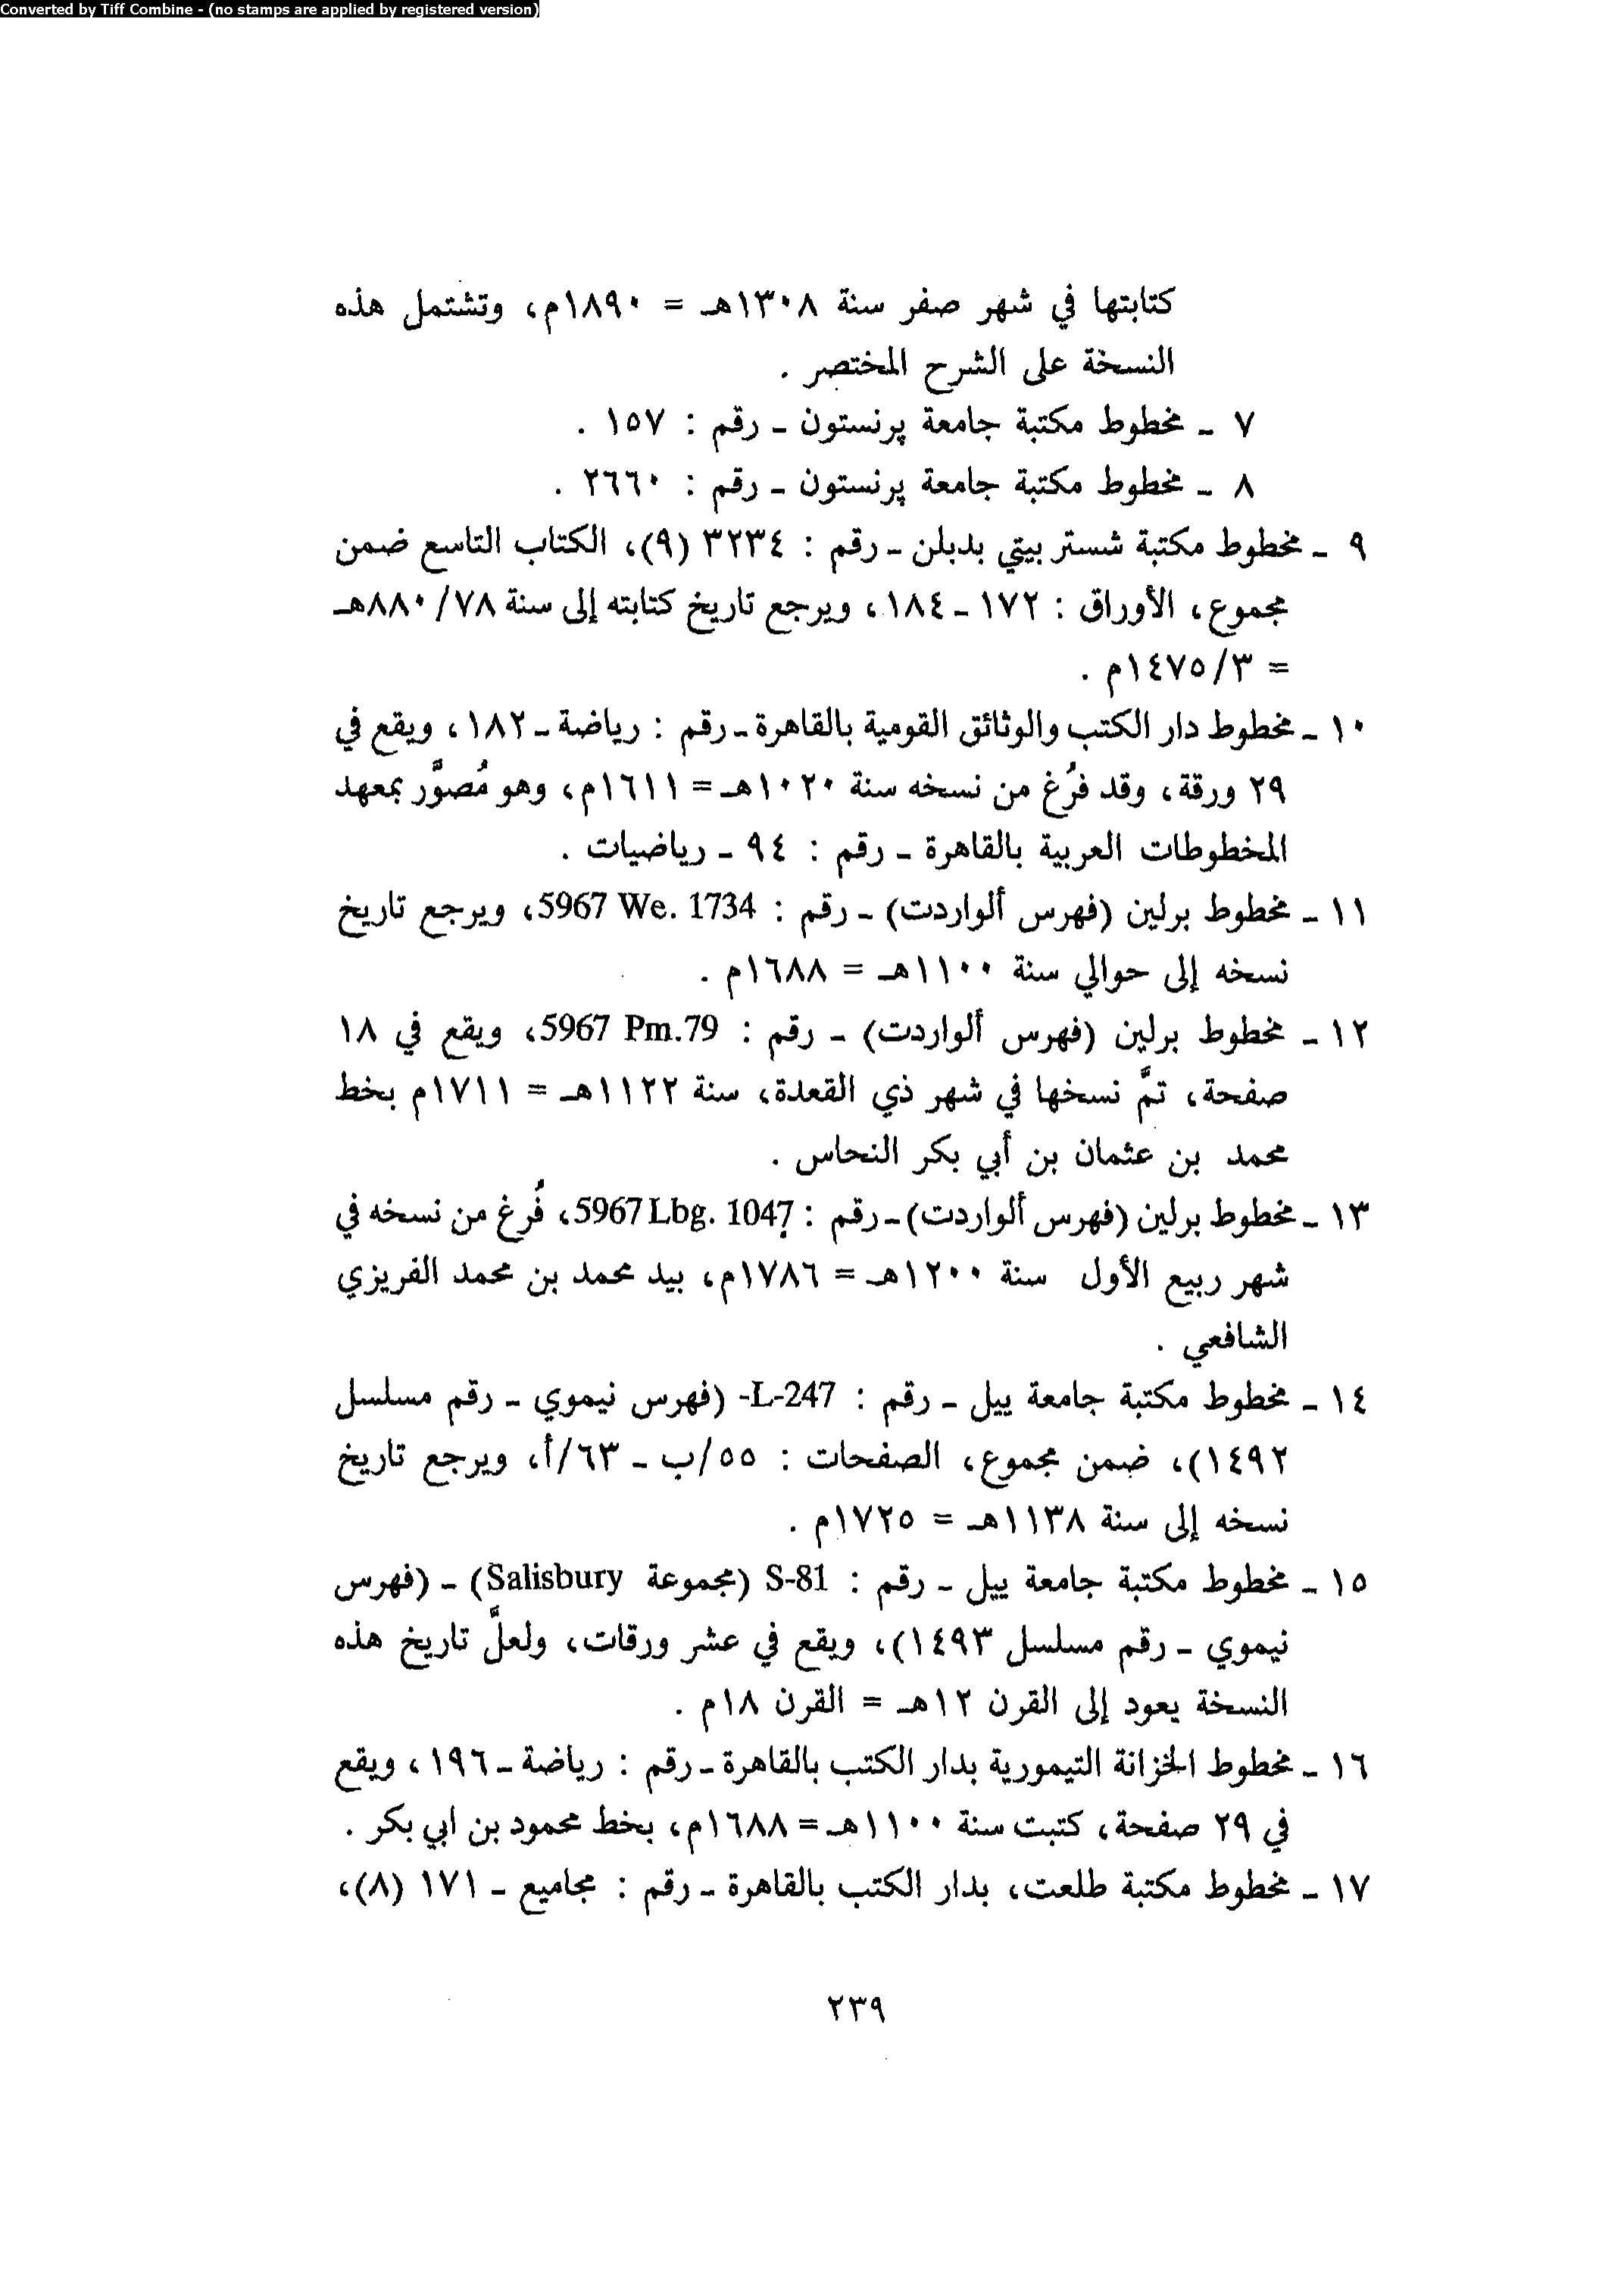 Converted by Tiff Combine - (no stamps are applied by registered version)
كتابتها في شهر صفر سنة ١٣٠٨هـ = ١٨٩٠م، وتشتمل هذه
النسخة على الشرح المختصر .
٧ ـ مخطوط مكتبة جامعة پرنستون ـ رقم : ١٥٧ .
٨ ـ مخطوط مكتبة جامعة پرنستون ـ رقم : ٢٦٦٠ .
٩ ـ مخطوط مكتبة شستر بيتي بدبلن ـ رقم : ٣٢٣٤ (٩)، الكتاب التاسع ضمن
مجموع، الأوراق : ١٧٢ ـ ١٨٤، ويرجع تاريخ كتابته إلى سنة ٧٨/ ٨٨٠هـ
= ٣/ ١٤٧٥م .
١٠ ـ مخطوط دار الكتب والوثائق القومية بالقاهرة ـ رقم : رياضة ـ ١٨٢، ويقع في
٢٩ ورقة، وقد فُرغ من نسخه سنة ١٠٢٠هـ = ١٦١١م، وهو مُصوَّر بمعهد
المخطوطات العربية بالقاهرة ـ رقم : ٩٤ ـ رياضيات .
١١ ـ مخطوط برلين (فهرس ألواردت) ـ رقم : 5967 We. 1734، ويرجع تاريخ
نسخه إلى حوالي سنة ١١٠٠هـ = ١٦٨٨م .
١٢ ـ مخطوط برلين (فهرس ألواردت) ـ رقم : 5967 Pm.79، ويقع في ١٨
صفحة، تمَّ نسخها في شهر ذي القعدة، سنة ١١٢٢هـ = ١٧١١م بخط
محمد بن عثمان بن أبي بكر النحاس .
١٣ ـ مخطوط برلين (فهرس ألواردت) ـ رقم : 5967 Lbg. 1047، فُرغ من نسخه في
شهر ربيع الأول سنة ١٢٠٠هـ = ١٧٨٦م، بيد محمد بن محمد الفريزي
الشافعي .
١٤ ـ مخطوط مكتبة جامعة ييل ـ رقم : L-247- (فهرس نيموي ـ رقم مسلسل
١٤٩٢)، ضمن مجموع، الصفحات : ٥٥/ب ـ ٦٣/أ، ويرجع تاريخ
نسخه إلى سنة ١١٣٨هـ = ١٧٢٥م .
١٥ ـ مخطوط مكتبة جامعة ييل ـ رقم : S-81 (مجموعة Salisbury) ـ (فهرس
نيموي ـ رقم مسلسل ١٤٩٣)، ويقع في عشر ورقات، ولعلَّ تاريخ هذه
النسخة يعود إلى القرن ١٢هـ = القرن ١٨م .
١٦ ـ مخطوط الخزانة التيمورية بدار الكتب بالقاهرة ـ رقم : رياضة ـ ١٩٦، ويقع
في ٢٩ صفحة، كتبت سنة ١١٠٠هـ = ١٦٨٨م، بخط محمود بن ابي بكر .
١٧ ـ مخطوط مكتبة طلعت، بدار الكتب بالقاهرة ـ رقم : مجاميع ـ ١٧١ (٨)،
٢٣٩